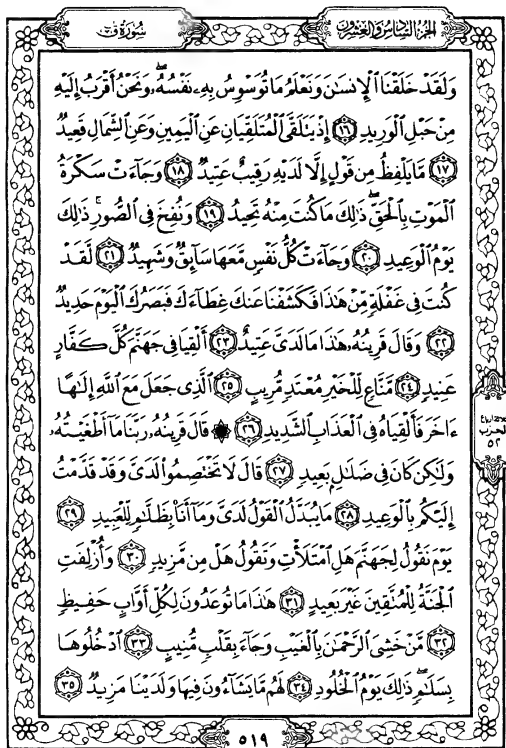 الجزء السادس والعشرون
سورة ق
وَلَقَدْ خَلَقْنَا ٱلْإِنسَٰنَ وَنَعْلَمُ مَا تُوَسْوِسُ بِهِۦ نَفْسُهُۥ ۖ وَنَحْنُ أَقْرَبُ إِلَيْهِ
مِنْ حَبْلِ ٱلْوَرِيدِ ١٦ إِذْ يَتَلَقَّى ٱلْمُتَلَقِّيَانِ عَنِ ٱلْيَمِينِ وَعَنِ ٱلشِّمَالِ قَعِيدٌ
١٧ مَّا يَلْفِظُ مِن قَوْلٍ إِلَّا لَدَيْهِ رَقِيبٌ عَتِيدٌ ١٨ وَجَآءَتْ سَكْرَةُ
ٱلْمَوْتِ بِٱلْحَقِّ ۖ ذَٰلِكَ مَا كُنتَ مِنْهُ تَحِيدُ ١٩ وَنُفِخَ فِى ٱلصُّورِ ۚ ذَٰلِكَ
يَوْمُ ٱلْوَعِيدِ ٢٠ وَجَآءَتْ كُلُّ نَفْسٍ مَّعَهَا سَآئِقٌ وَشَهِيدٌ ٢١ لَّقَدْ
كُنتَ فِى غَفْلَةٍ مِّنْ هَٰذَا فَكَشَفْنَا عَنكَ غِطَآءَكَ فَبَصَرُكَ ٱلْيَوْمَ حَدِيدٌ
٢٢ وَقَالَ قَرِينُهُۥ هَٰذَا مَا لَدَىَّ عَتِيدٌ ٢٣ أَلْقِيَا فِى جَهَنَّمَ كُلَّ كَفَّارٍ
عَنِيدٍ ٢٤ مَّنَّاعٍ لِّلْخَيْرِ مُعْتَدٍ مُّرِيبٍ ٢٥ ٱلَّذِى جَعَلَ مَعَ ٱللَّهِ إِلَٰهًا
ءَاخَرَ فَأَلْقِيَاهُ فِى ٱلْعَذَابِ ٱلشَّدِيدِ ٢٦ ۞ قَالَ قَرِينُهُۥ رَبَّنَا مَآ أَطْغَيْتُهُۥ
وَلَٰكِن كَانَ فِى ضَلَٰلٍۭ بَعِيدٍ ٢٧ قَالَ لَا تَخْتَصِمُوا۟ لَدَىَّ وَقَدْ قَدَّمْتُ
إِلَيْكُم بِٱلْوَعِيدِ ٢٨ مَا يُبَدَّلُ ٱلْقَوْلُ لَدَىَّ وَمَآ أَنَا۠ بِظَلَّٰمٍ لِّلْعَبِيدِ ٢٩
يَوْمَ نَقُولُ لِجَهَنَّمَ هَلِ ٱمْتَلَأْتِ وَتَقُولُ هَلْ مِن مَّزِيدٍ ٣٠ وَأُزْلِفَتِ
ٱلْجَنَّةُ لِلْمُتَّقِينَ غَيْرَ بَعِيدٍ ٣١ هَٰذَا مَا تُوعَدُونَ لِكُلِّ أَوَّابٍ حَفِيظٍ
٣٢ مَّنْ خَشِىَ ٱلرَّحْمَٰنَ بِٱلْغَيْبِ وَجَآءَ بِقَلْبٍ مُّنِيبٍ ٣٣ ٱدْخُلُوهَا
بِسَلَٰمٍ ۖ ذَٰلِكَ يَوْمُ ٱلْخُلُودِ ٣٤ لَهُم مَّا يَشَآءُونَ فِيهَا وَلَدَيْنَا مَزِيدٌ ٣٥
الحزب
٥٢
٥١٩